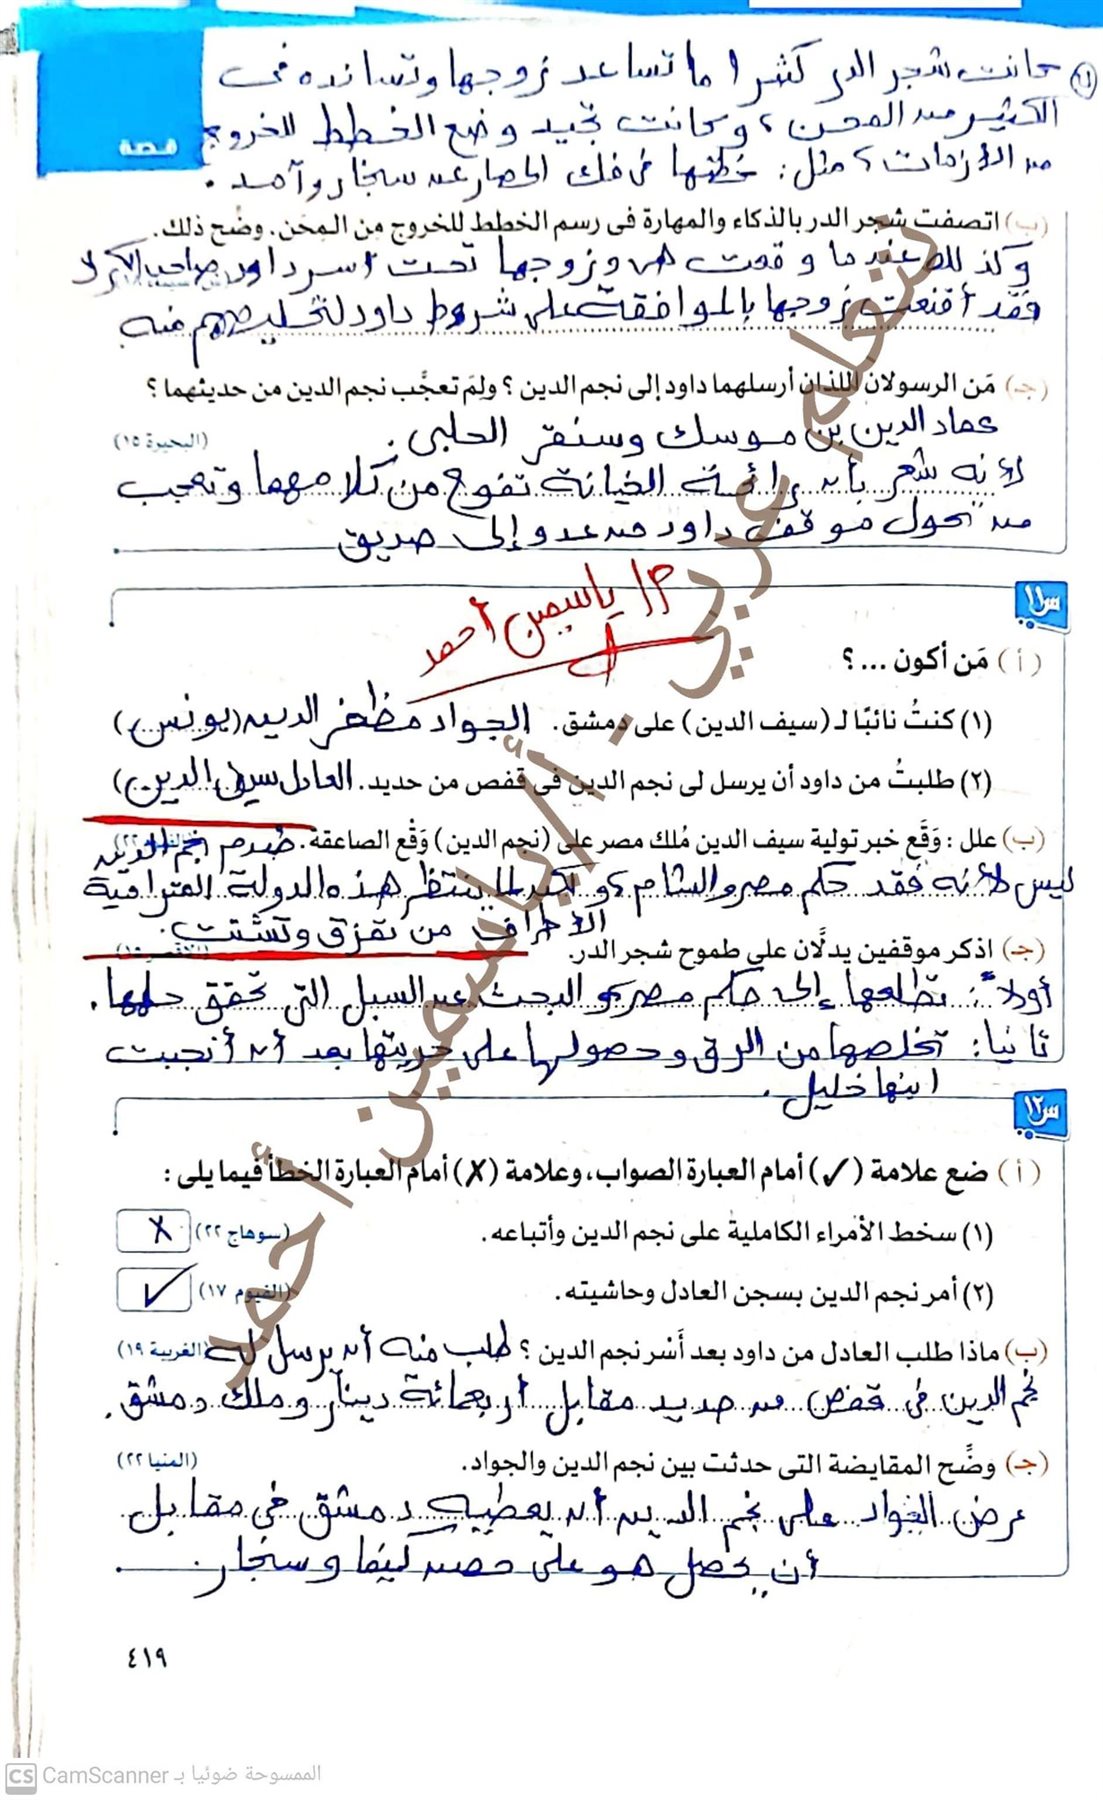 كانت شجر الدر كثيرا ما تساعد زوجها وتسانده فى
الكثير من المحن، وكانت تجيد وضع الخطط للخروج
من الأزمات، مثل: خطتها فى فك الحصار عن سنجار وآمد.
قصة
(ب) اتصفت شجر الدر بالذكاء والمهارة فى رسم الخطط للخروج من المِحَن. وضِّح ذلك.
وكذلك عندما وقعت هى وزوجها تحت أسر داود صاحب الكرك
فقد أقنعت زوجها بالموافقة على شروط داود لتخليصهم منه
(جـ) مَن الرسولان اللذان أرسلهما داود إلى نجم الدين؟ ولِمَ تعجَّب نجم الدين من حديثهما؟
(البحيرة ١٥)
عماد الدين بن موسك وسنقر الحلبى.
لأنه شعر بأن رائحة الخيانة تفوح من كلامهما وتعجب
من تحول موقف داود من عدو إلى صديق
أ/ ياسمين أحمد
س١١
(أ) مَن أكون ...؟
(١) كنتُ نائبًا لـ (سيف الدين) على دمشق. الجواد مظفر الدين (يونس)
(٢) طلبتُ من داود أن يرسل لى نجم الدين فى قفص من حديد. (العادل سيف الدين)
(ب) علل: وَقَع خبر تولية سيف الدين مُلك مصر على (نجم الدين) وَقْع الصاعقة. صُدم نجم الدين
ليس لأنه فقد حكم مصر والشام، ولكن لما ينتظر هذه الدولة المترامية
الأطراف من تمزق وتشتت.
(جـ) اذكر موقفين يدلَّان على طموح شجر الدر.
أولاً: تطلعها إلى حكم مصر والبحث عن السبل التى تحقق حلمها.
ثانيا: تخلصها من الرق وحصولها على حريتها بعد أن أنجبت
ابنها خليل.
س١٢
(أ) ضع علامة (✓) أمام العبارة الصواب، وعلامة (✗) أمام العبارة الخطأ فيما يلى:
(١) سخط الأمراء الكاملية على نجم الدين وأتباعه. (سوهاج ٢٢) ✗
(٢) أمر نجم الدين بسجن العادل وحاشيته. (الفيوم ١٧) ✓
(ب) ماذا طلب العادل من داود بعد أَسْر نجم الدين؟ طلب منه أن يرسل له (الغربية ١٩)
نجم الدين فى قفص من حديد مقابل أربعمائة دينار وملك دمشق.
(جـ) وضِّح المقايضة التى حدثت بين نجم الدين والجواد. (المنيا ٢٢)
عرض الجواد على نجم الدين أن يعطيه دمشق فى مقابل
أن يحصل هو على حصن كيفا وسنجار.
نتعلم عربي - أ/ياسمين أحمد
٤١٩
CS CamScanner الممسوحة ضوئيا بـ